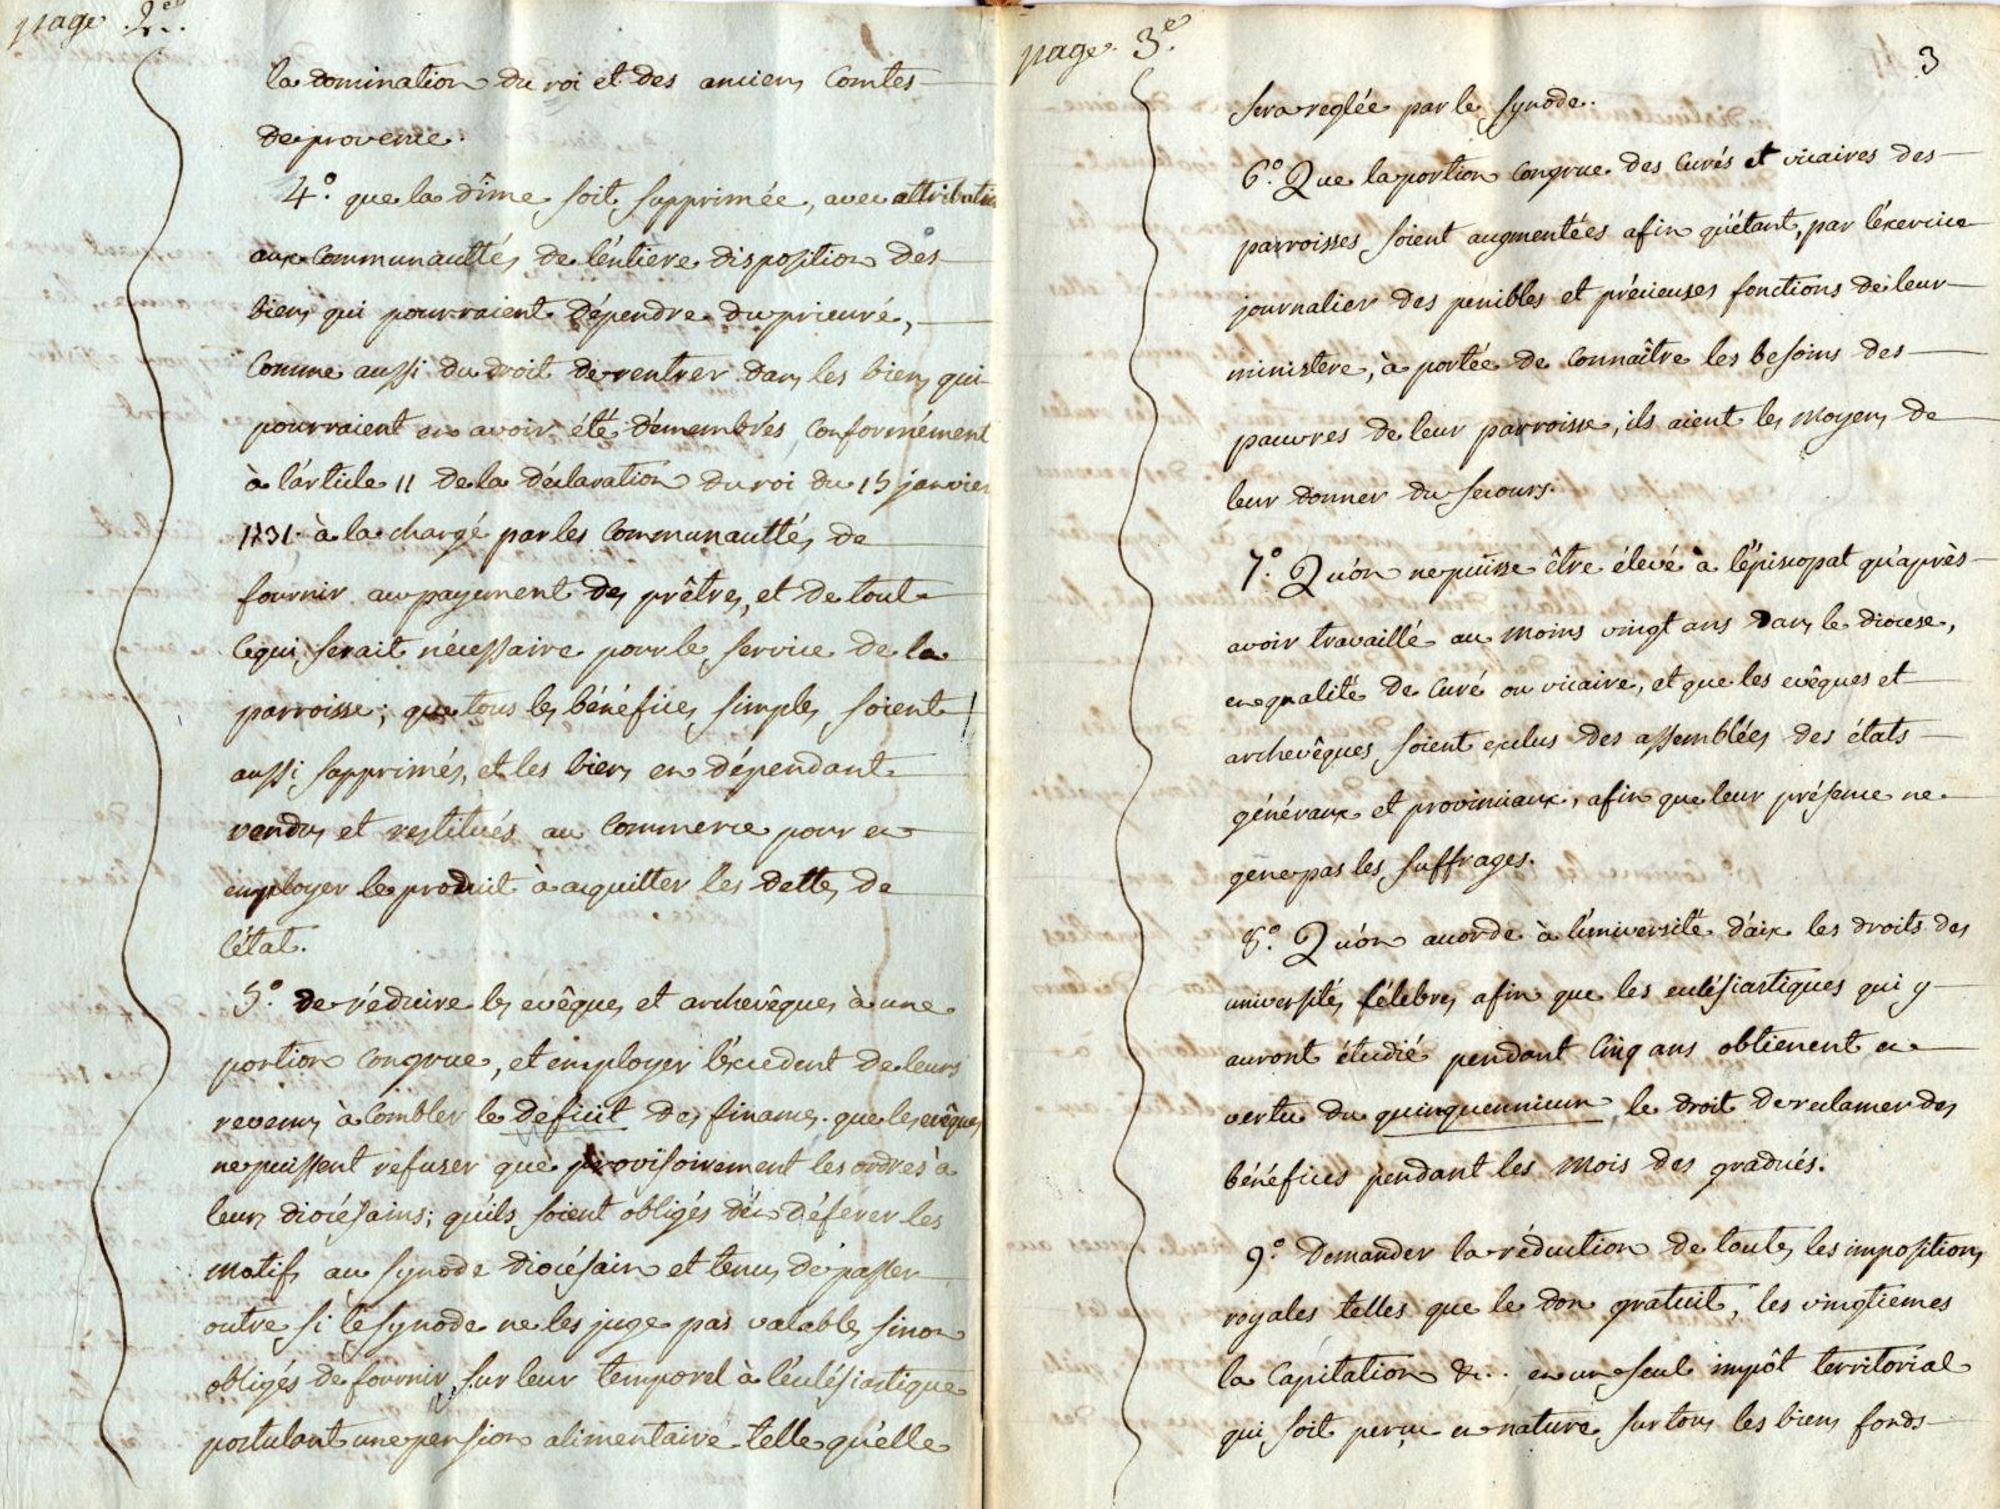 page 2.e
la domination du roi et des anciens Comtes
de provence.
4.° que la dîme soit supprimée, avec attribution
aux communauttés de l'éntiere disposition des
biens qui pourraient dépendre du prieuré,
Comme aussi du droit de rentrer dans les biens qui
pourraient en avoir été démembrés conformément
à l'article 11 de la déclaration du roi du 15 janvier
1731. à la charge par les Communauttés de
fournir au payement des prêtres, et de tout
ce qui serait nécessaire pour le service de la
parroisse; que tous les bénéfices simples soient
aussi supprimés, et les biens en dépendant
vendus et restitués au Commerce pour en
employer le produit à acquitter les dettes de
l'état.
5.° de réduire les evêques et archevêques à une
portion congrue, et employer l'éxcedent de leurs
revenus à combler le deficit des finances. que les evêques
ne puissent refuser que provisoirement les ordres à
leurs diocésains; qu'ils soient obligés d'en déferer les
motifs au synode diocésain et tenus de passer
outre si le synode ne les juge pas valables sinon
obligés de fournir sur leur temporel à l'ecclésiastique
postulant une pension alimentaire telle qu'elle
page 3.e
3
sera reglée par le synode.
6.° Que la portion congrue des Curés et vicaires des
parroisses soient augmentées afin qu'étant, par l'éxercice
journalier des penibles et précieuses fonctions de leur
ministere, à portée de connaître les besoins des
pauvres de leur parroisse, ils aient les moyens de
leur donner du secours.
7.° Qu'on ne puisse être élevé à l'épiscopat qu'après
avoir travaillé au moins vingt ans dans le diocese,
en qualité de Curé ou vicaire, et que les evêques et
archevêques soient exclus des assemblées des états
généraux et provinciaux, afin que leur présence ne
gene pas les suffrages.
8.° Qu'on accorde à l'université d'aix les droits des
universités célebres afin que les ecclésiastiques qui y
auront étudié pendant cinq ans obtienent en
vertu du quinquennium le droit de reclamer des
bénéfices pendant les mois des gradués.
9.° Demander la réduction de toutes les impositions
royales telles que le don gratuit, les vingtiemes
la Capitation &.. en un seul impôt territorial
qui soit perçu en nature sur tous les biens fonds